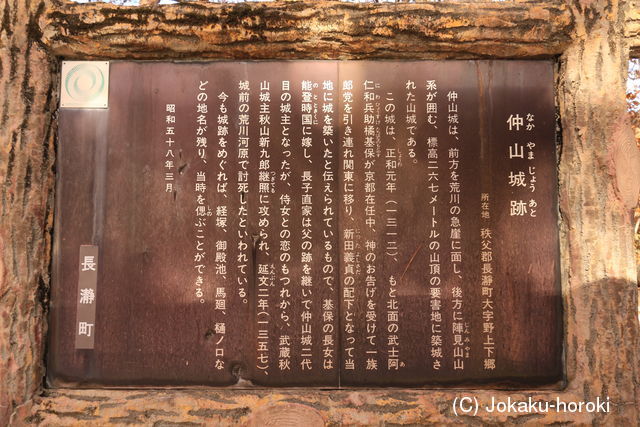 仲山城跡
なか やま じょう あと
所在地 秩父郡長瀞町大字野上下郷
仲山城は、前方を荒川の急崖に面し、後方に陣見山山
系が囲む、標高二六七メートルの山頂の要害地に築城さ
れた山城である。
この城は、正和元年（一三一二）、もと北面の武士阿
仁和兵助橘基保が京都在任中、神のお告げを受けて一族
郎党を引き連れ関東に移り、新田義貞の配下となって当
地に城を築いたと伝えられているもので、基保の長女は
能登時国に嫁し、長子直家は父の跡を継いで仲山城二代
目の城主となったが、侍女との恋のもつれから、武蔵秋
山城主秋山新九郎継照に攻められ、延文二年（一三五七）、
城前の荒川河原で討死したといわれている。
今も城跡をめぐれば、経塚、御殿池、馬廻、樋ノ口な
どの地名が残り、当時を偲ぶことができる。
昭和五十八年三月
長瀞町
(C) Jokaku-horoki